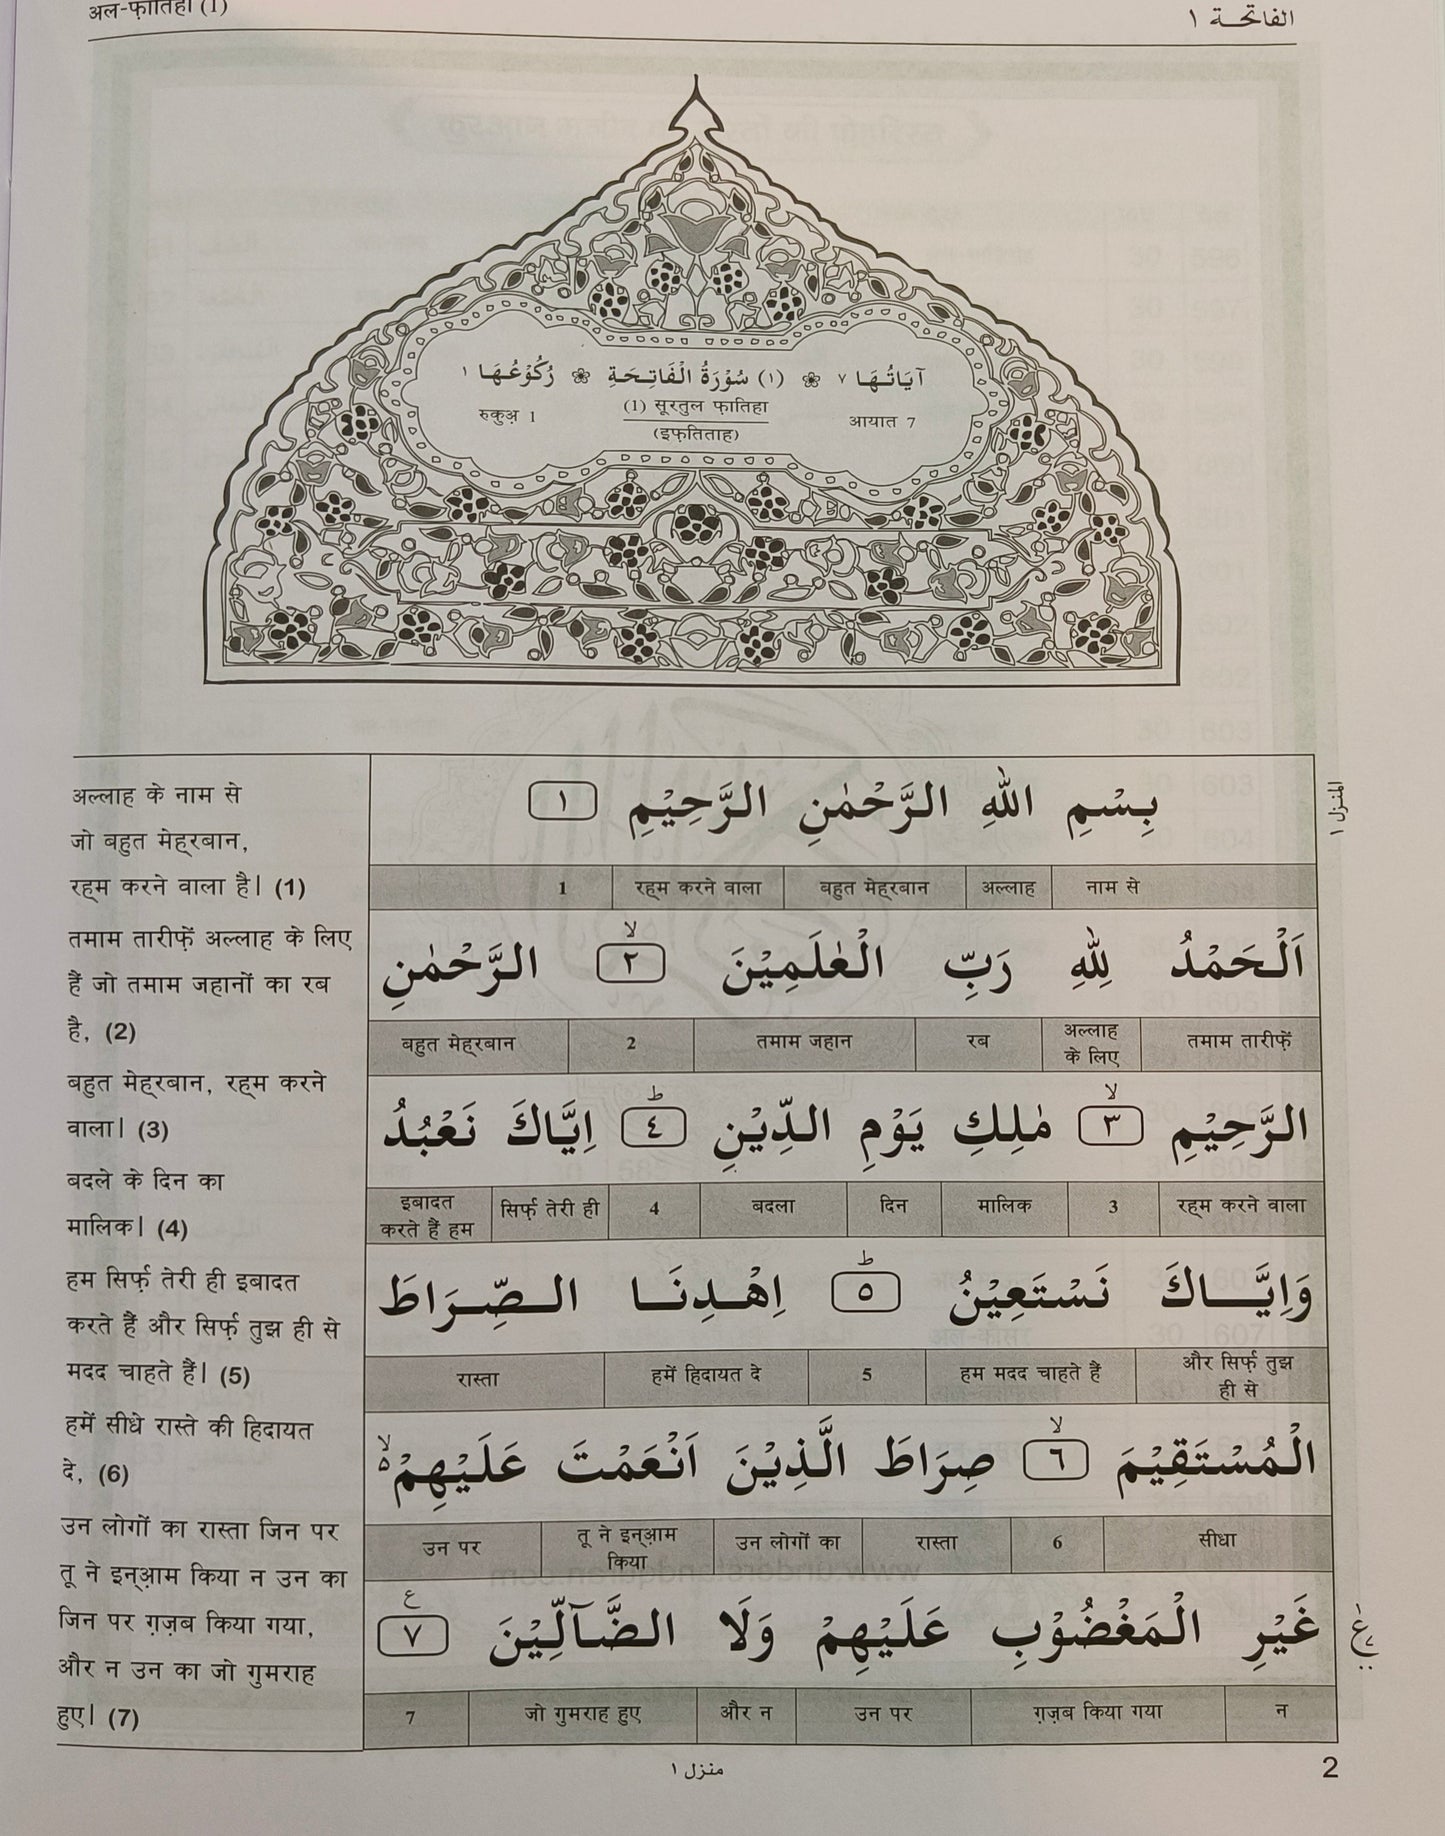 अल-फ़ातिहा (1)
الفاتحة ١
اٰيَاتُهَا ٧ ❀ (١) سُوْرَةُ الْفَاتِحَةِ ❀ رُكُوْعُهَا ١
रुकुअ़ 1
(1) सूरतुल फ़ातिहा
(इफ़तिताह)
आयात 7
المنزل ١
بِسْمِ اللّٰهِ الرَّحْمٰنِ الرَّحِيْمِ ١
नाम से | अल्लाह | बहुत मेह्‌रबान | रह्‌म करने वाला | 1
اَلْحَمْدُ لِلّٰهِ رَبِّ الْعٰلَمِيْنَ ۙ ٢ الرَّحْمٰنِ
तमाम तारीफ़ें | अल्लाह के लिए | रब | तमाम जहान | 2 | बहुत मेह्‌रबान
الرَّحِيْمِ ۙ ٣ مٰلِكِ يَوْمِ الدِّيْنِ ؕ ٤ اِيَّاكَ نَعْبُدُ
रह्‌म करने वाला | 3 | मालिक | दिन | बदला | 4 | सिर्फ़ तेरी ही | इबादत करते हैं हम
وَاِيَّاكَ نَسْتَعِيْنُ ؕ ٥ اِهْدِنَا الصِّرَاطَ
और सिर्फ़ तुझ ही से | हम मदद चाहते हैं | 5 | हमें हिदायत दे | रास्ता
الْمُسْتَقِيْمَ ۙ ٦ صِرَاطَ الَّذِيْنَ اَنْعَمْتَ عَلَيْهِمْ ۙ۬
सीधा | 6 | रास्ता | उन लोगों का | तू ने इन्‌आ़म किया | उन पर
غَيْرِ الْمَغْضُوْبِ عَلَيْهِمْ وَلَا الضَّآلِّيْنَ ٧ ع
न | ग़ज़ब किया गया | उन पर | और न | जो गुमराह हुए | 7
अल्लाह के नाम से
जो बहुत मेह्‌रबान,
रह्‌म करने वाला है। (1)
तमाम तारीफ़ें अल्लाह के लिए
हैं जो तमाम जहानों का रब
है, (2)
बहुत मेह्‌रबान, रह्‌म करने
वाला। (3)
बदले के दिन का
मालिक। (4)
हम सिर्फ़ तेरी ही इबादत
करते हैं और सिर्फ़ तुझ ही से
मदद चाहते हैं। (5)
हमें सीधे रास्ते की हिदायत
दे, (6)
उन लोगों का रास्ता जिन पर
तू ने इन्‌आ़म किया न उन का
जिन पर ग़ज़ब किया गया,
और न उन का जो गुमराह
हुए। (7)
منزل ١
2